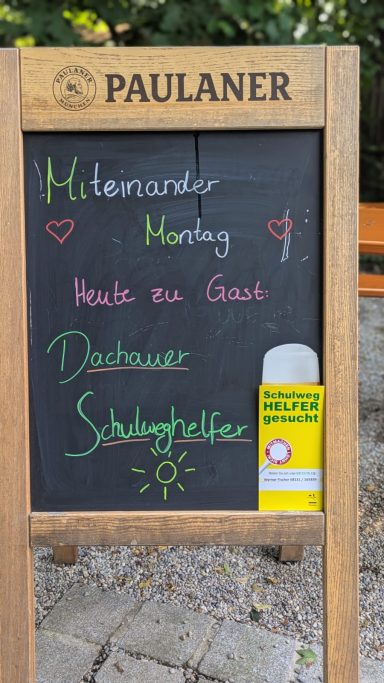 PAULANER
MÜNCHEN
PAULANER
Miteinander
Montag
Heute zu Gast:
Dachauer
Schulweghelfer
Schulweg
HELFER
gesucht